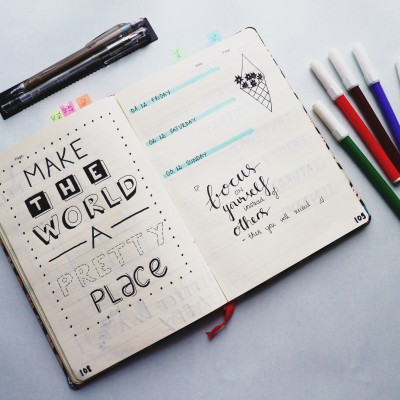 MAKE
THE
WORLD
A
PRETTY
PLACE
108
FRIDAY
SATURDAY
SUNDAY
focus
on
yourself
instead of
others
- then you will
105